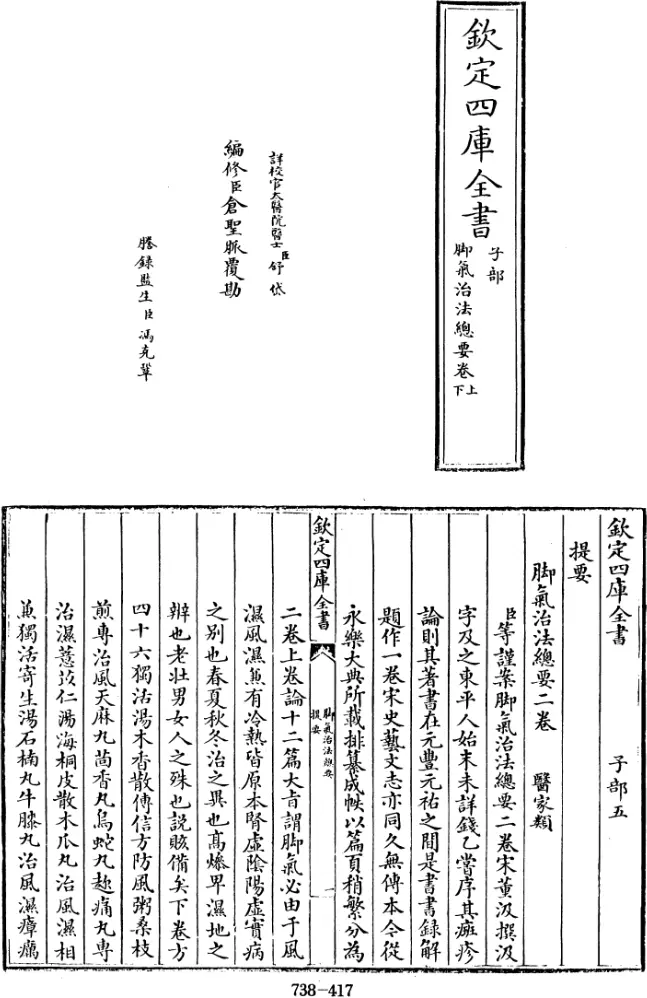 欽定四庫全書
子部
脚氣治法總要卷上下
詳校官太醫院醫士臣舒岱
編修臣倉聖脈覆勘
謄錄監生臣馮克鞏
欽定四庫全書 子部五
提要
脚氣治法總要二卷 醫家類
臣等謹案脚氣治法總要二卷宋董汲撰汲
字及之東平人始末未詳錢乙嘗序其㿀疹
論則其著書在元豐元祐之間是書書錄解
題作一卷宋史藝文志亦同久無傳本今從
永樂大典所載排纂成帙以篇頁稍繁分為
欽定四庫全書
脚氣治法總要
提要
一
二卷上卷論十二篇大㫖謂脚氣必由于風
濕風濕兼有冷熱皆原本腎虚隂陽虚實病
之别也春夏秋冬治之異也髙燥卑濕地之
辨也老壯男女人之殊也説賅備矣下卷方
四十六獨活湯木香散傳信方防風粥桑枝
煎專治風天麻丸茴香丸烏蛇丸趂痛丸專
治濕薏苡仁湯海桐皮散木瓜丸治風濕相
兼獨活寄生湯石楠丸牛膝丸治風濕瘴癘
738-417